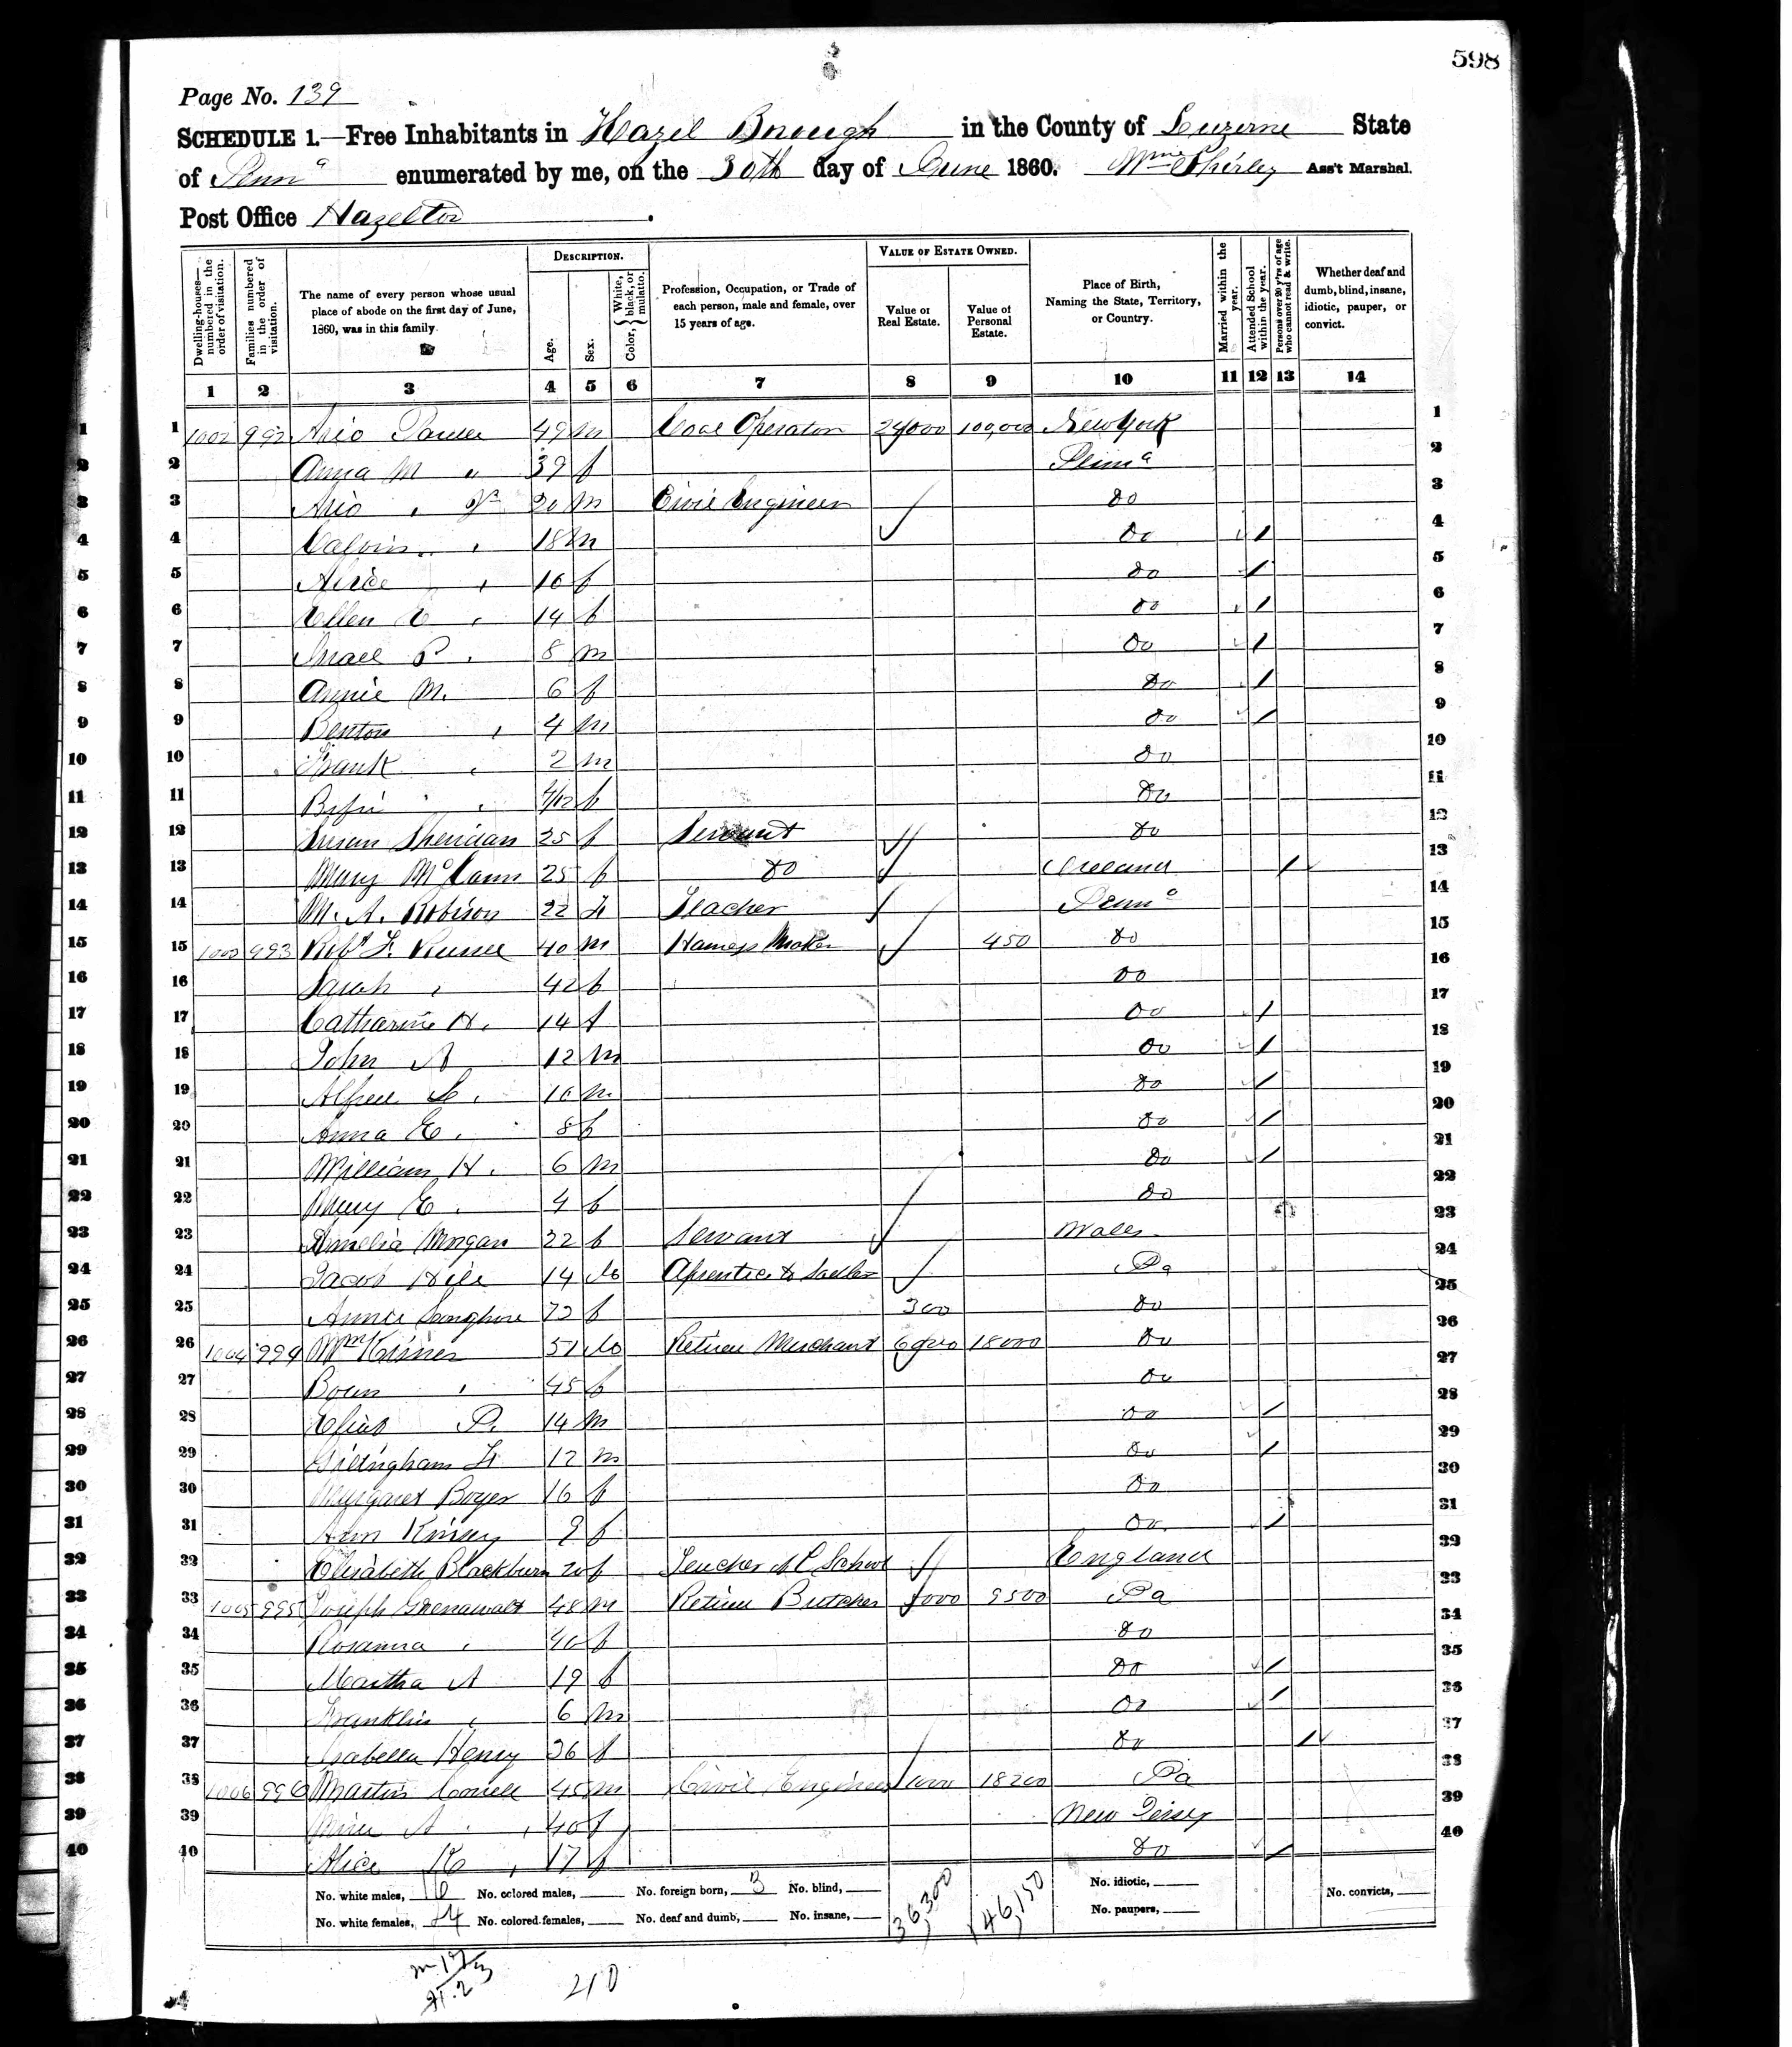 598
Page No. 139
SCHEDULE 1.—Free Inhabitants in Hazel Borough in the County of Luzerne State
of Penna enumerated by me, on the 30th day of June 1860. Wm Shirley Ass't Marshal.
Post Office Hazelton.
DESCRIPTION. VALUE OF ESTATE OWNED.
Dwelling-houses—numbered in the order of visitation. Families numbered in the order of visitation. The name of every person whose usual place of abode on the first day of June, 1860, was in this family. Age. Sex. Color, White, black, or mulatto. Profession, Occupation, or Trade of each person, male and female, over 15 years of age. Value of Real Estate. Value of Personal Estate. Place of Birth, Naming the State, Territory, or Country. Married within the year. Attended School within the year. Persons over 20 y'rs of age who cannot read & write. Whether deaf and dumb, blind, insane, idiotic, pauper, or convict.
1 2 3 4 5 6 7 8 9 10 11 12 13 14
1 1002 992 Ario Pardee 49 m Coal Operator 100,000 New York 1
2 Anna M " 39 f Penna 2
3 Ario " Jr 20 m Civil Engineer do 3
4 Calvin " 18 m do / 4
5 Alice " 16 f do / 5
6 Ellen " 14 f do / 6
7 Israel P. " 8 m do / 7
8 Annie M. 6 f do / 8
9 Benton " 4 m do / 9
10 Frank " 2 m do 10
11 " f do 11
12 Susan Sheridan 25 f Servant do 12
13 Mary McCann 25 f do Ireland / 13
14 M. A. Robison 22 f Teacher Penna 14
15 1003 993 Robt F. 40 m Harness Maker 450 do 15
16 Sarah " 42 f do 16
17 Catharine H. 14 f do / 17
18 John A 12 m do / 18
19 Alfred 10 m do / 19
20 Anna E. 8 f do / 20
21 William H. 6 m do / 21
22 Mary E. 4 f do 22
23 Amelia Morgan 22 f Servant Wales 23
24 Jacob Hill 14 M Aprentice to Sadler Pa 24
25 f 300 do 25
26 1004 994 Wm 51 M Retired Merchant 18000 do 26
27 " 45 f do 27
28 P. 14 m do / 28
29 Gillingham F. 12 m do / 29
30 Margaret Boyer 16 f do 30
31 Ann Kinsey 9 f do / 31
32 Elisabeth Blackburn 20 f Teacher School England 32
33 1005 995 Joseph Grenawalt 48 m Retired Butcher 9500 Pa 33
34 Rosanna " 40 f do 34
35 Martha A 19 f do / 35
36 Franklin " 6 m do / 36
37 Isabella Henry 36 f do / 37
38 1006 996 Martin 45 m Civil Engineer 1000 18200 Pa 38
39 A " 40 f New Jersey 39
40 Alice " 17 f do / 40
No. white males, 16 No. colored males, No. foreign born, 3 No. blind, No. idiotic, No. convicts,
No. white females, 24 No. colored females, No. deaf and dumb, No. insane, 36,300 146,150 No. paupers,
210